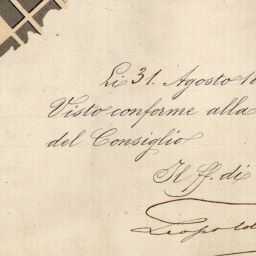 Li 31. Agosto 18
Visto conforme alla
del Consiglio
Il ff. di
Leopold